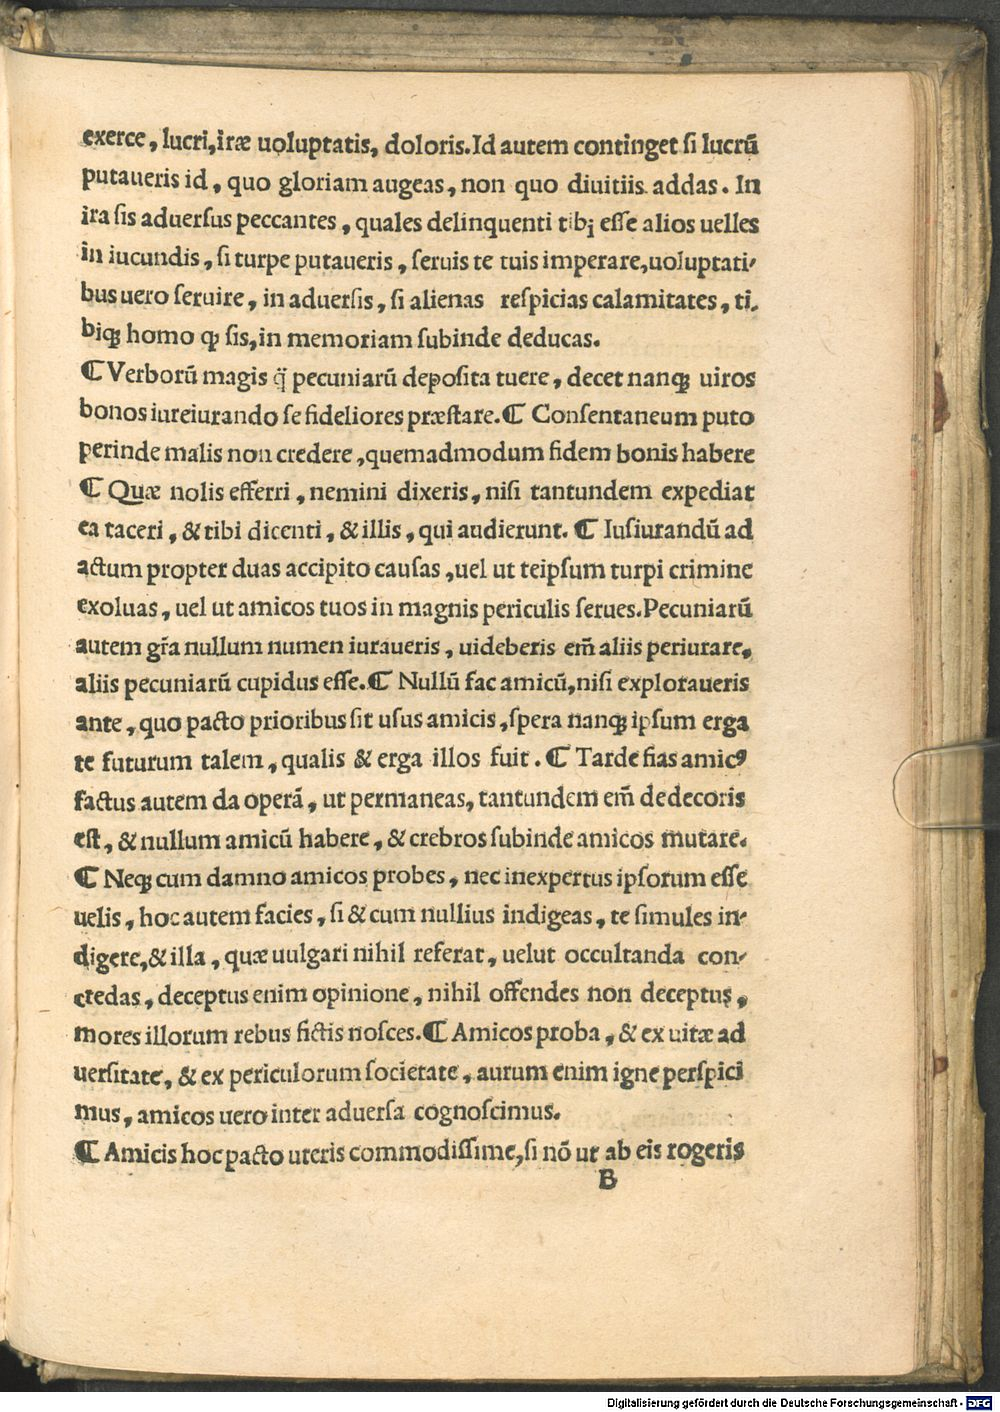 exerce, lucri, iræ uoluptatis, doloris. Id autem continget ſi lucrũ
putaueris id, quo gloriam augeas, non quo diuitiis addas. In
ira ſis aduerſus peccantes, quales delinquenti tibi eſſe alios uelles
in iucundis, ſi turpe putaueris, ſeruis te tuis imperare, uoluptati-
bus uero ſeruire, in aduerſis, ſi alienas reſpicias calamitates, ti.
biqꝫ homo ꝙ ſis, in memoriam ſubinde deducas.
¶ Verborũ magis q̃ pecuniarũ depoſita tuere, decet nanqꝫ uiros
bonos iureiurando ſe fideliores præſtare. ¶ Conſentaneum puto
perinde malis non credere, quemadmodum fidem bonis habere
¶ Quæ nolis efferri, nemini dixeris, niſi tantundem expediat
ea taceri, & tibi dicenti, & illis, qui audierunt. ¶ Iuſiurandũ ad
actum propter duas accipito cauſas, uel ut teipſum turpi crimine
exoluas, uel ut amicos tuos in magnis periculis ſerues. Pecuniarũ
autem gr̃a nullum numen iuraueris, uideberis em̃ aliis periurare,
aliis pecuniarũ cupidus eſſe. ¶ Nullũ fac amicũ, niſi exploraueris
ante, quo pacto prioribus ſit uſus amicis, ſpera nanqꝫ ipſum erga
te futurum talem, qualis & erga illos fuit. ¶ Tarde fias amicꝰ
factus autem da operã, ut permaneas, tantundem em̃ dedecoris
eſt, & nullum amicũ habere, & crebros ſubinde amicos mutare.
¶ Neqꝫ cum damno amicos probes, nec inexpertus ipſorum eſſe
uelis, hoc autem facies, ſi & cum nullius indigeas, te ſimules in-
digere, & illa, quæ uulgari nihil referat, uelut occultanda con-
credas, deceptus enim opinione, nihil offendes non deceptus,
mores illorum rebus fictis noſces. ¶ Amicos proba, & ex uitæ ad
uerſitate, & ex periculorum ſocietate, aurum enim igne perſpici
mus, amicos uero inter aduerſa cognoſcimus.
¶ Amicis hoc pacto uteris commodiſſime, ſi nõ ut ab eis rogeris
B
Digitalisierung gefördert durch die Deutsche Forschungsgemeinschaft - DFG